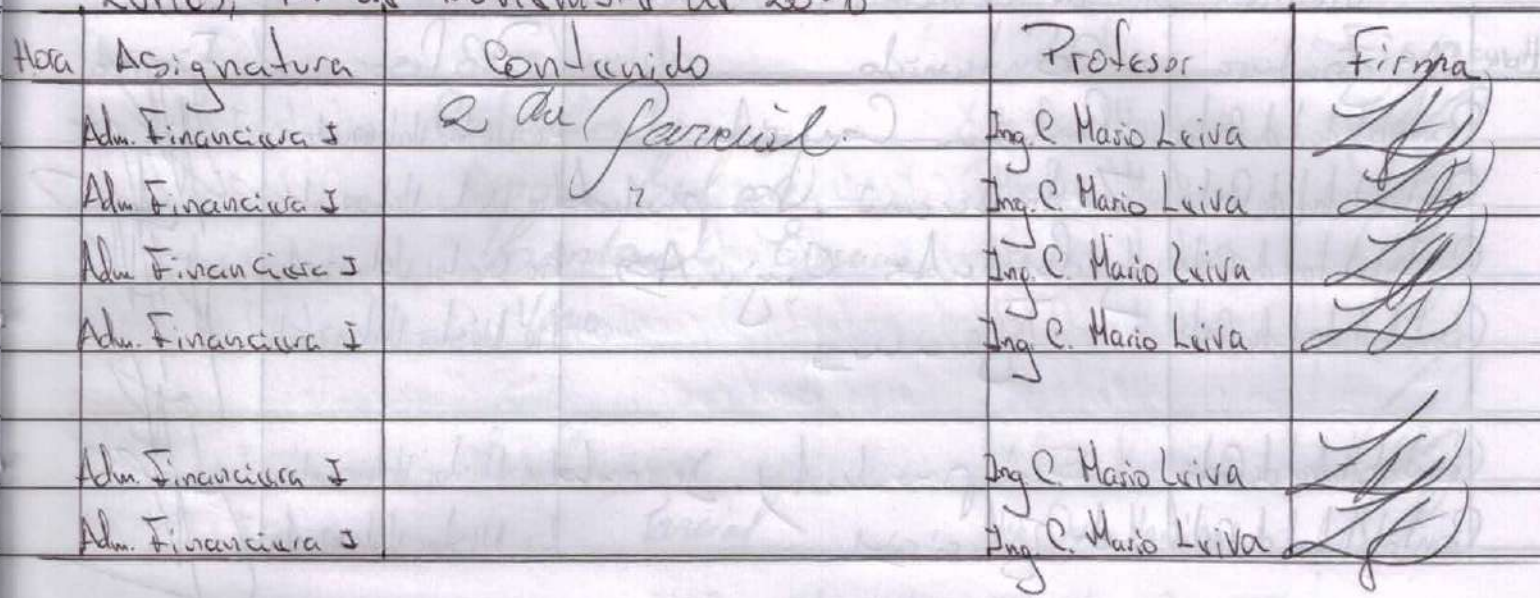 Hora Asignatura Contenido Profesor Firma
Adm. Financiera I 2 da Parcial. Ing. C. Mario Leiva
Adm. Financiera I " Ing. C. Mario Leiva
Adm. Financiera I Ing. C. Mario Leiva
Adm. Financiera I Ing. C. Mario Leiva
Adm. Financiera I Ing. C. Mario Leiva
Adm. Financiera I Ing. C. Mario Leiva